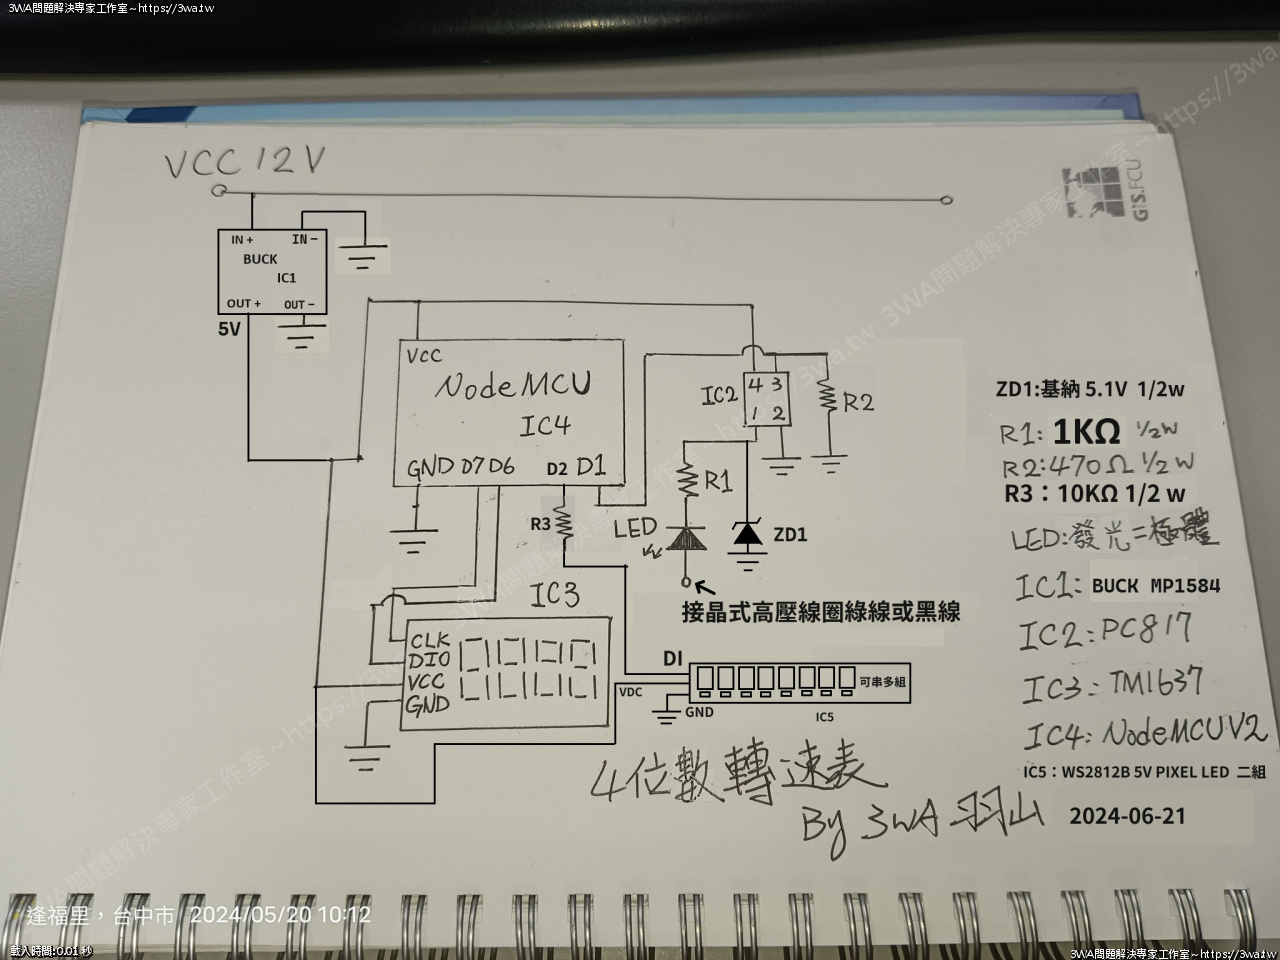 3WA問題解決專家工作室~https://3wa.tw
VCC 12V
GIS.FCU
IN + IN −
BUCK
IC1
OUT + OUT −
5V
VCC
NodeMCU
IC4
GND D7 D6 D2 D1
IC2
4 3
1 2
R2
R1
R3
LED
ZD1
接晶式高壓線圈綠線或黑線
IC3
CLK
DIO
VCC
GND
DI
VDC
GND
可串多組
IC5
ZD1:基納 5.1V 1/2w
R1: 1KΩ 1/2W
R2:470Ω 1/2W
R3：10KΩ 1/2 w
LED:發光二極體
IC1: BUCK MP1584
IC2: PC817
IC3: TM1637
IC4: NodeMCU V2
IC5：WS2812B 5V PIXEL LED 二組
4位數轉速表
By 3WA 羽山
2024-06-21
3WA問題解決專家工作室~https://3wa.tw
3WA問題解決專家工作室~https://3wa.tw
逢福里，台中市 2024/05/20 10:12
載入時間:0.01 秒
3WA問題解決專家工作室~https://3wa.tw